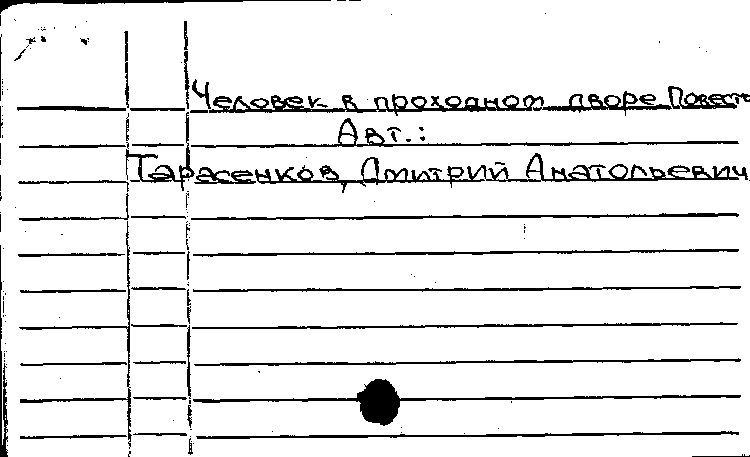 Человек в проходном дворе Повесть
Авт.:
Тарасенков, Дмитрий Анатольевич